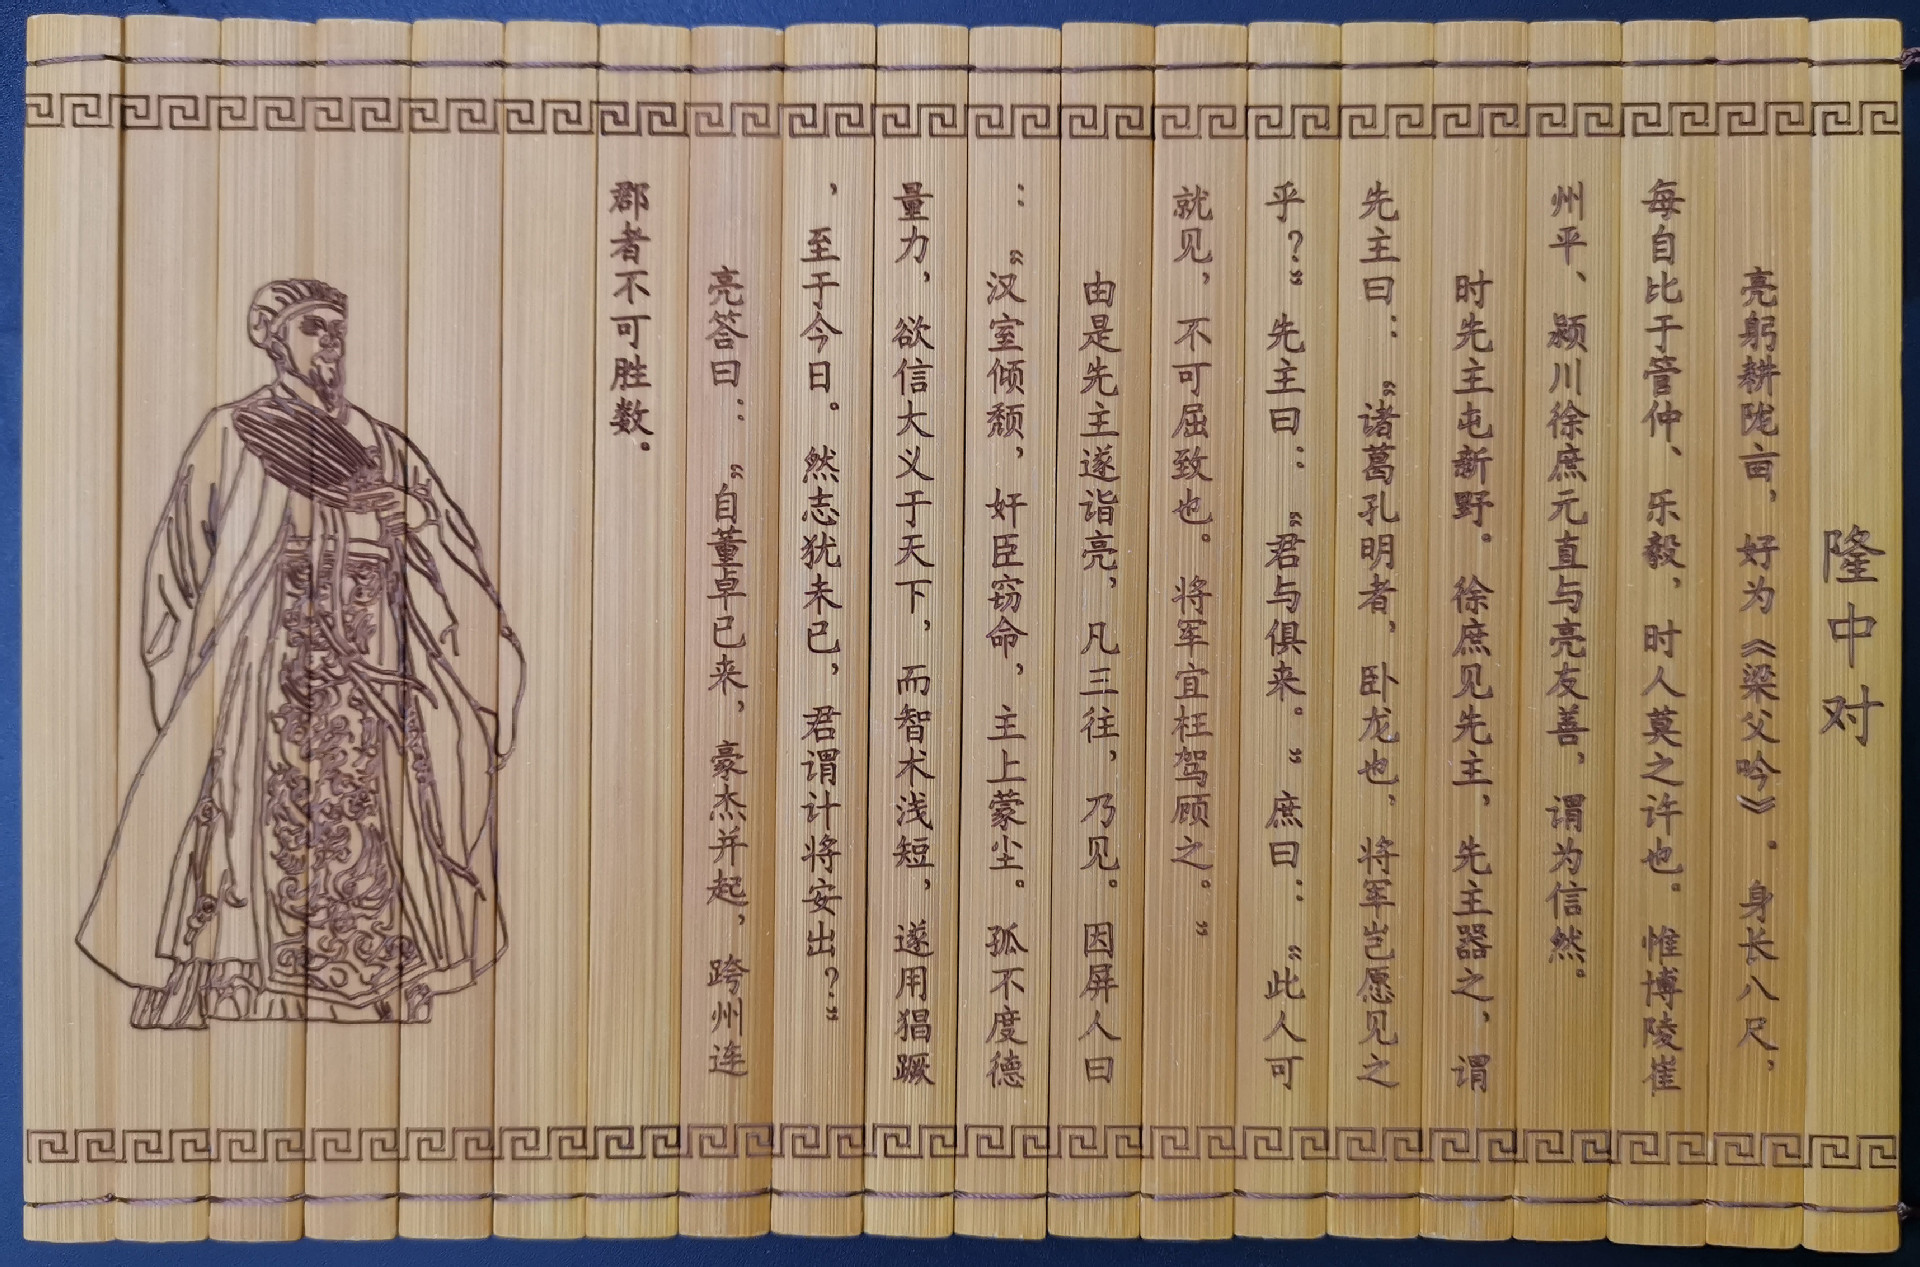 隆中对
亮躬耕陇亩，好为《梁父吟》.身长八尺，
每自比于管仲、乐毅，时人莫之许也。惟博陵崔
州平、颍川徐庶元直与亮友善，谓为信然。
时先主屯新野。徐庶见先主，先主器之，谓
先主曰：“诸葛孔明者，卧龙也，将军岂愿见之
乎？”先主曰：“君与俱来。”庶曰：“此人可
就见，不可屈致也。将军宜枉驾顾之。”
由是先主遂诣亮，凡三往，乃见。因屏人曰
：“汉室倾颓，奸臣窃命，主上蒙尘。孤不度德
量力，欲信大义于天下，而智术浅短，遂用猖蹶
，至于今日。然志犹未已，君谓计将安出？”
亮答曰：“自董卓已来，豪杰并起，跨州连
郡者不可胜数。